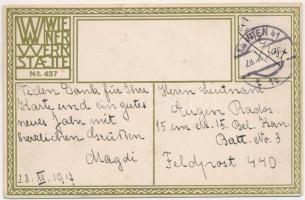 WIENER
WERK
STÄTTE
No. 437
WIEN 41
Vielen Dank für Ihre
Karte und ein gutes
neues Jahr mit
herzlichen Grüßen
Magdi
28. XII. 1917
Herrn Leutnant
Eugen Rados
15 cm M. 15. Bel. Kan.
Batt. No. 3
Feldpost 440